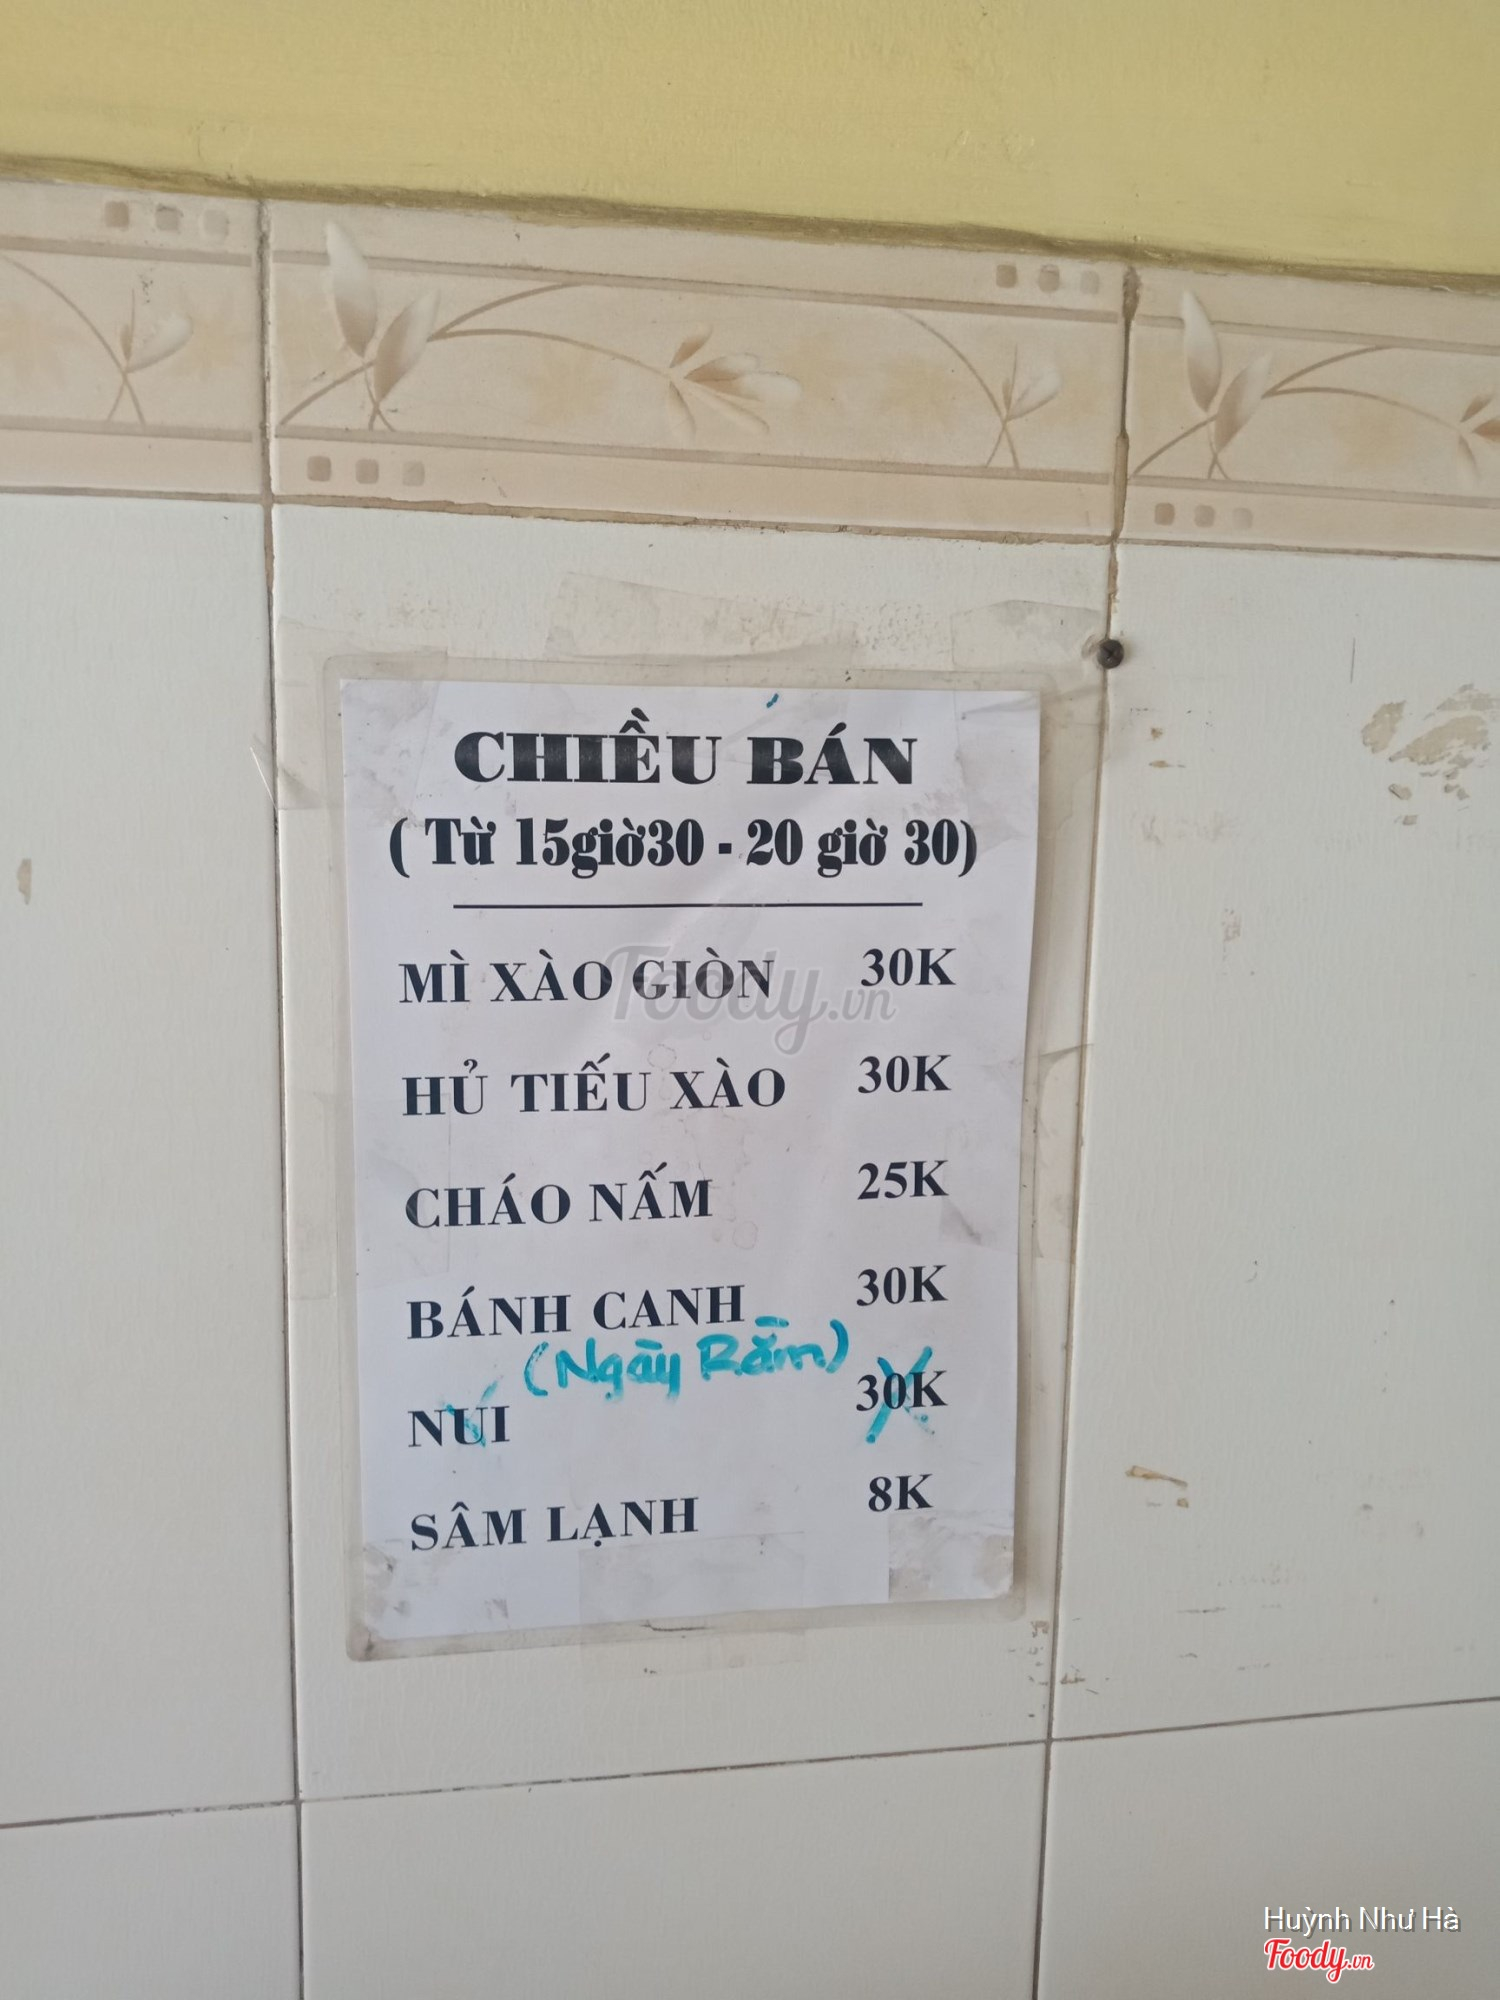 CHIỀU BÁN
( Từ 15giờ30 - 20 giờ 30)
MÌ XÀO GIÒN 30K
HỦ TIẾU XÀO 30K
CHÁO NẤM 25K
BÁNH CANH 30K
(Ngày Rằm)
NUI 30K
SÂM LẠNH 8K
Foody.vn
Huỳnh Như Hà
Foody.vn